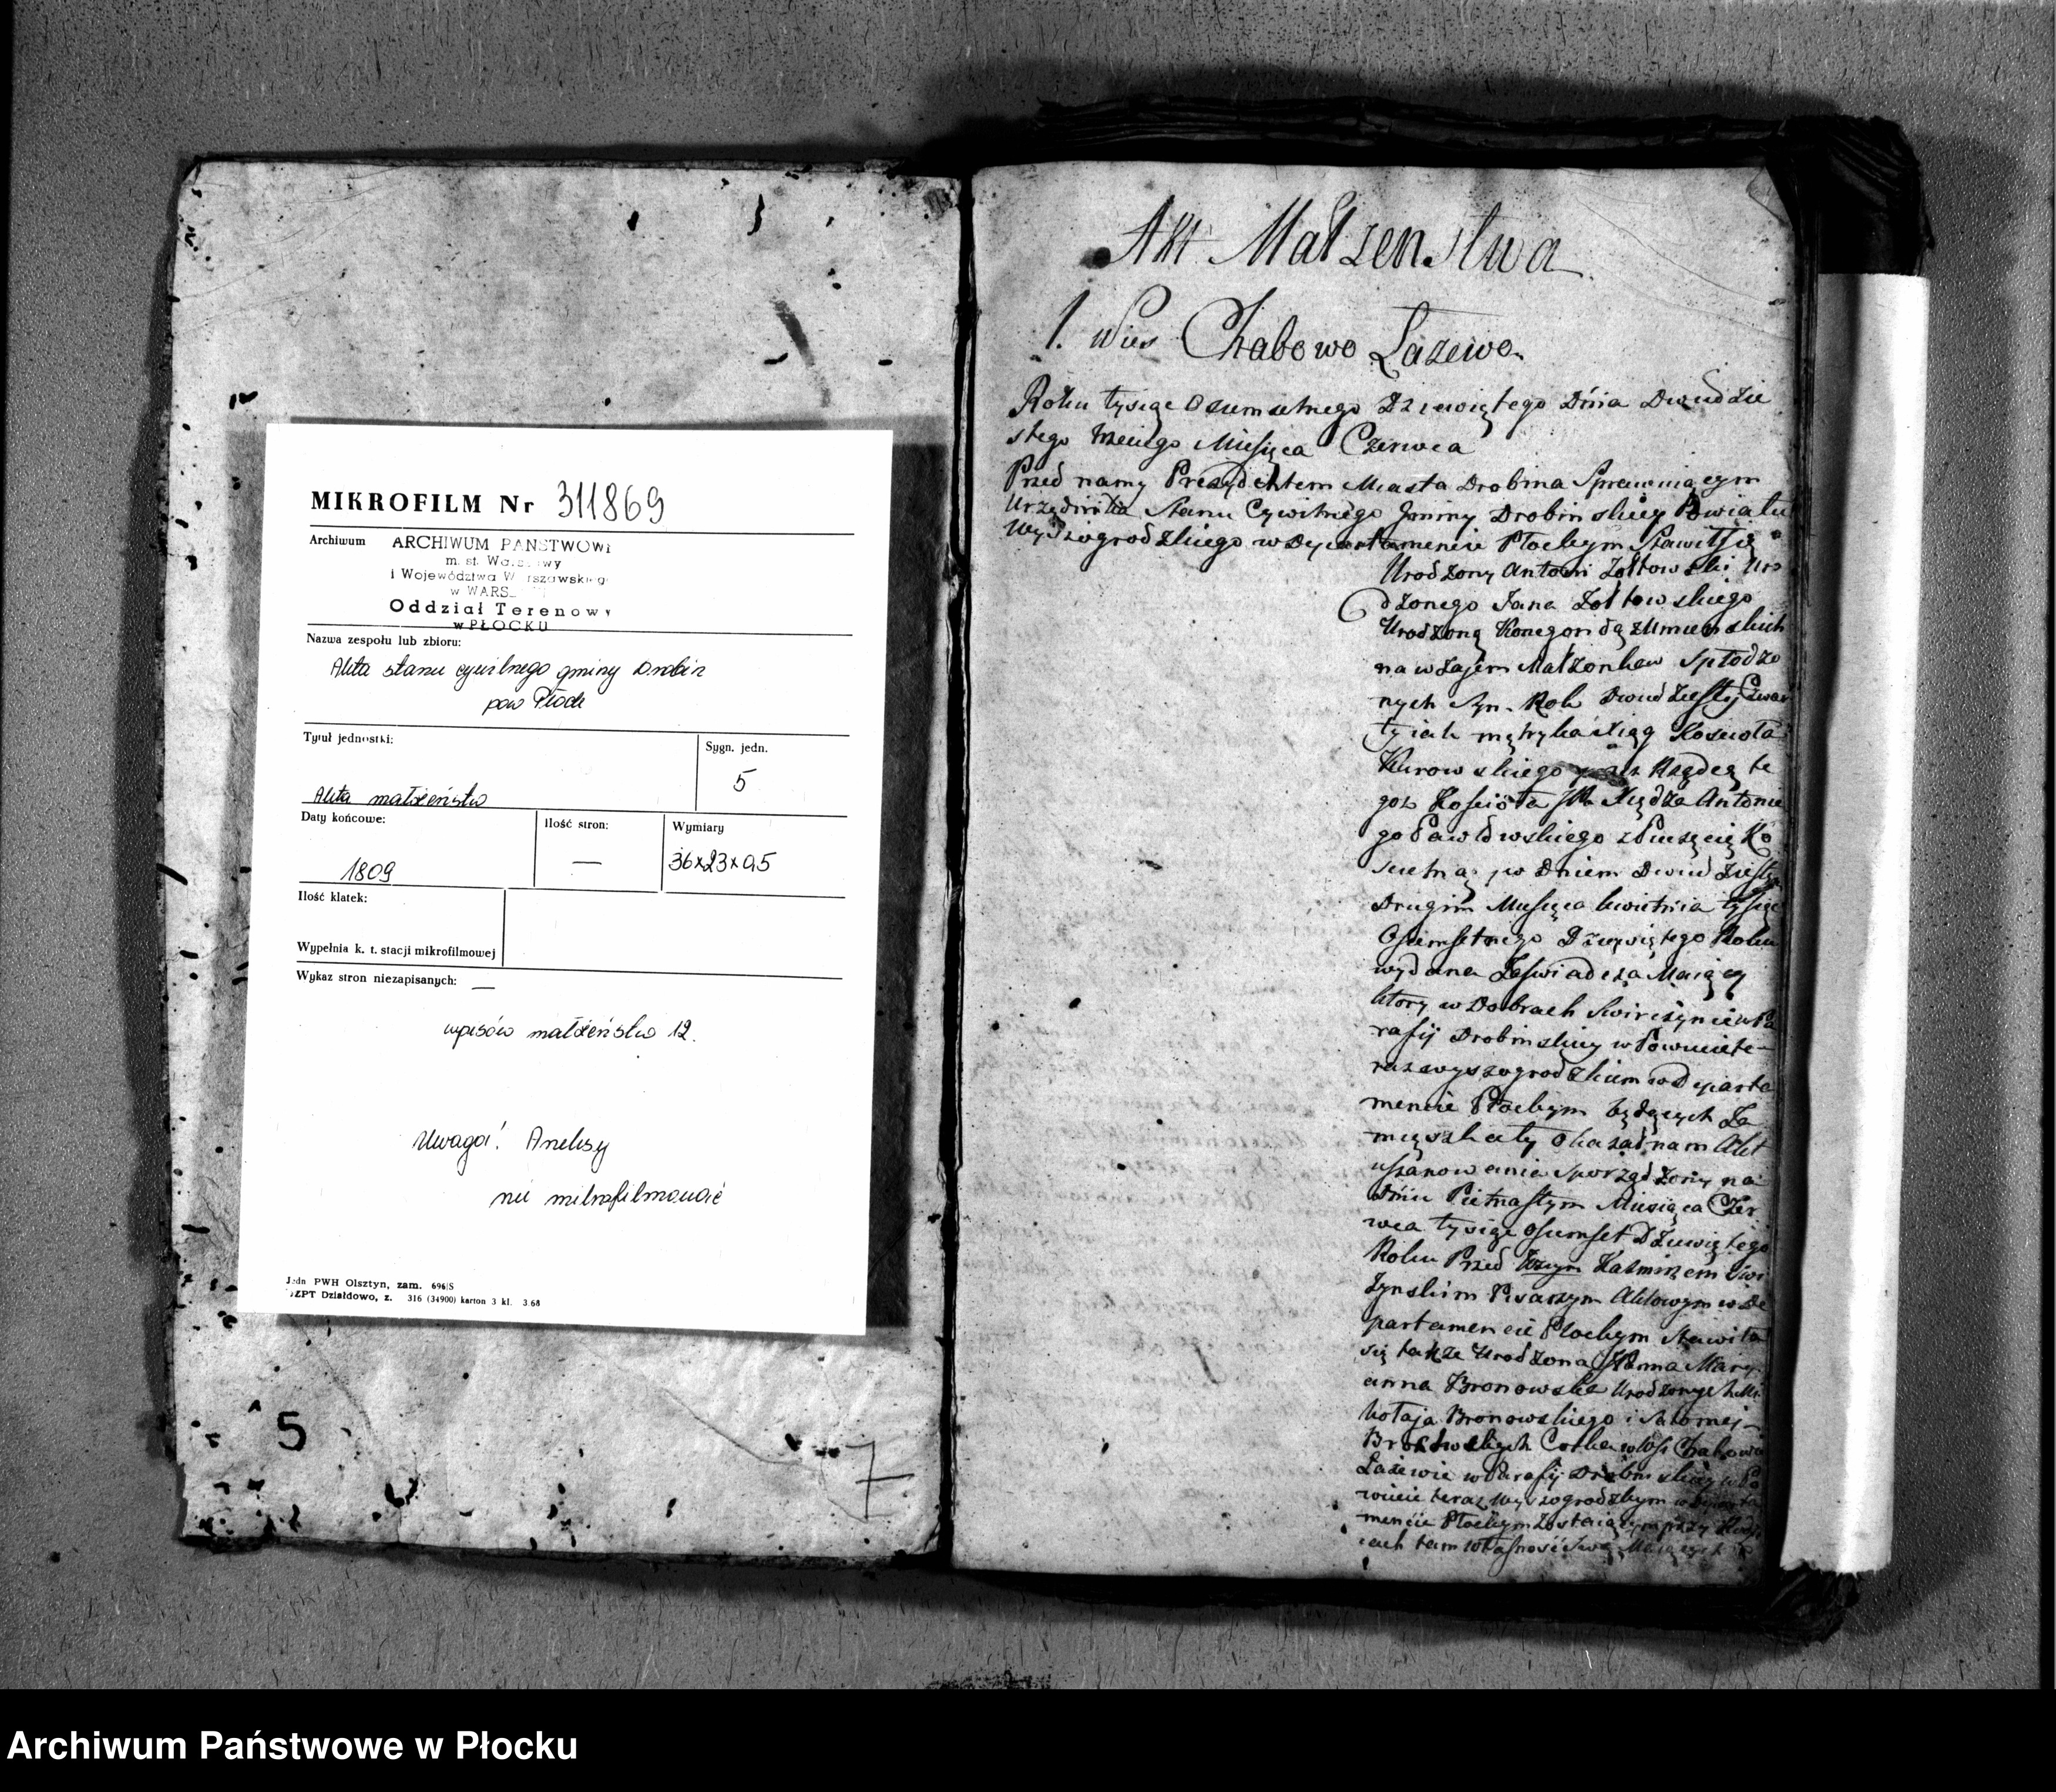 MIKROFILM Nr 311869
Archiwum ARCHIWUM PAŃSTWOWE
m. st. Warszawy
i Województwa Warszawskieg
w WARS
Oddział Terenowy
w PŁOCKU
Nazwa zespołu lub zbioru:
Akta stanu cywilnego gminy Drobin
pow Płock
Tytuł jednostki:
Sygn. jedn.
5
Akta małżeństw
Daty końcowe:
Ilość stron:
Wymiary
1809
—
36x23x0,5
Ilość klatek:
Wypełnia k. t. stacji mikrofilmowej
Wykaz stron niezapisanych: —
wpisów małżeństw 12.
Uwaga! Aneksy
nie mikrofilmować
Jedn PWH Olsztyn, zam. 696/S
OZPT Działdowo, z. 316 (34900) karton 3 kl. 3.68
5
7
Akt Małzenstwa
1. Wies Chabowo Łazewo
Roku tysiąc Osiemsetnego Dziewiętego Dnia Dwudzie
stego trzeciego Miesięca Czerwca
Przed namy Prezydentem Miasta Drobina Sprawuiącym
Urzędnika Stanu Cywilnego Gminy Drobinskiey Powiatu
Wyszogrodzkiego w Departamencie Płockym Stawił się
Urodzony Antoni Zołtowski Uro
dzonego Jana Zołtowskiego
Urodzoną Konegondą z
nawzajem Małzonkow Spłodzo
nych Syn. Rok Dwudziesty Czwar
ty iak mętryka Xiąg Koscioła
Kurowskiego przez Rządcę te
goz Koscioła Xiędza Antonie
go Pawłowskiego z Pieczęcię Ko
scielną pod Dniem Dwudziestym
Drugim Miesięca kwietnia tysiąc
Osiemsetnego Dziewiętego Roku
wydana Zaswiadcza Maiący
ktory w Dobrach w Pa
rafij Drobinskiey w Powiecie
raz wyszogrodzkiem w Departa
mencie Płockym będących Za
mięszkały okazał nam Akt
uszanowania Sporządzony na
Dniu Pietnastym Miesiąca Czer
wca tysiąc osiemset Dziewiętego
Roku Przed Kazmirzem
Pisarzym Aktowym w De
partamencie Płockym Stawiła
się także Urodzona Panna Mary
anna Bronowska Urodzonych Mi
kołaja Bronowskiego i Salomej
Bronowskiych Corka w wsi Chabowo
Łazewie w Parafij Drobinskiey w Po
wiecie teraz wyszogrodzkym w Departa
mencie Płockym Zostaiącym przy Rodzi
cach tam własność Swą Maiących
Archiwum Państwowe w Płocku